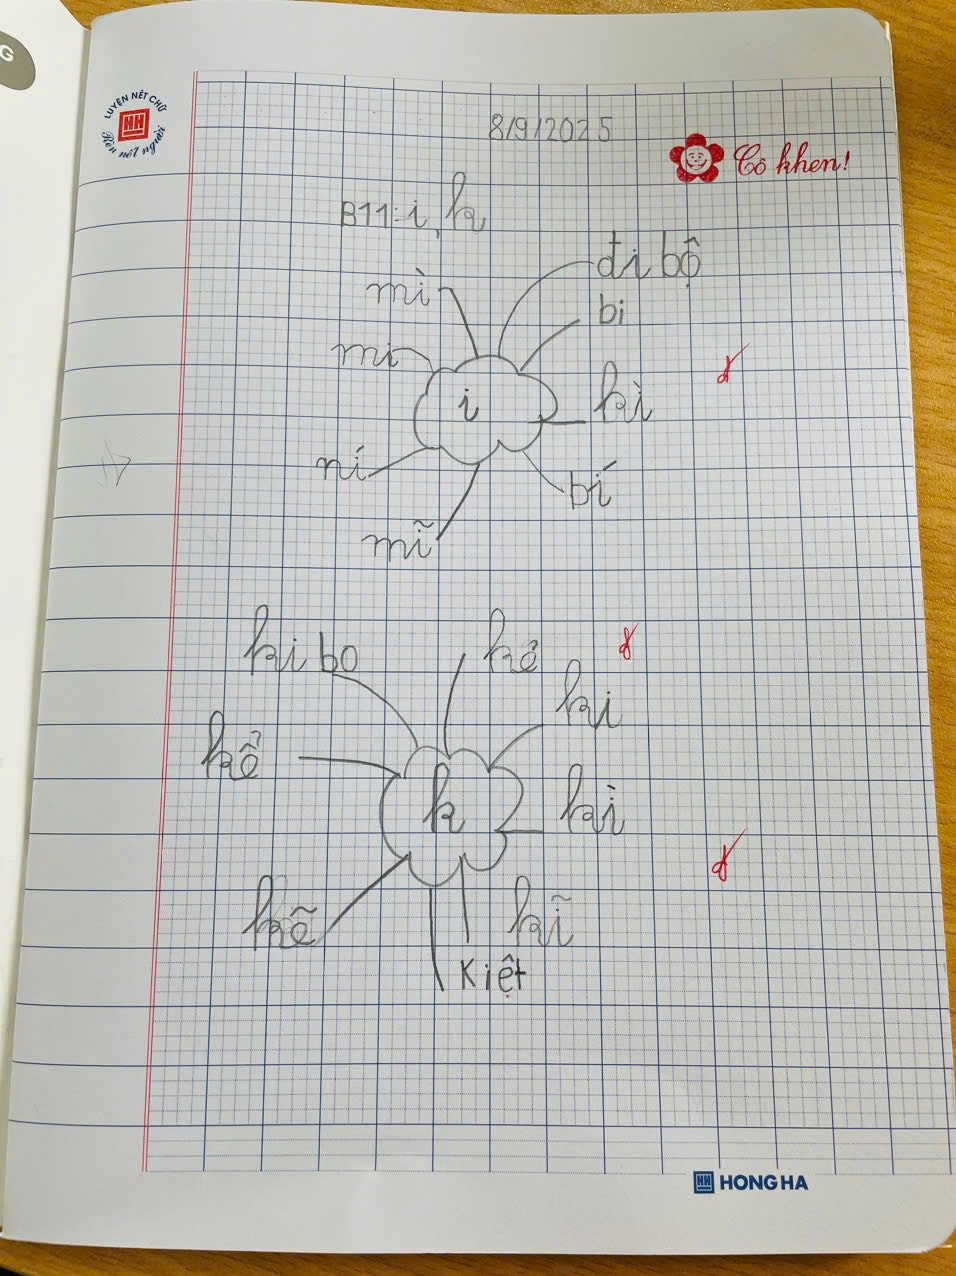 G
LUYỆN NÉT CHỮ
HH
Rèn nết người
8/9/2025
Cô khen!
B11: i, k
đi bộ
mì
bi
mi
i
kì
ní
bí
mĩ
ki bo
kê
ki
kể
k
kì
kẽ
kĩ
Kiệt
HH HONG HA